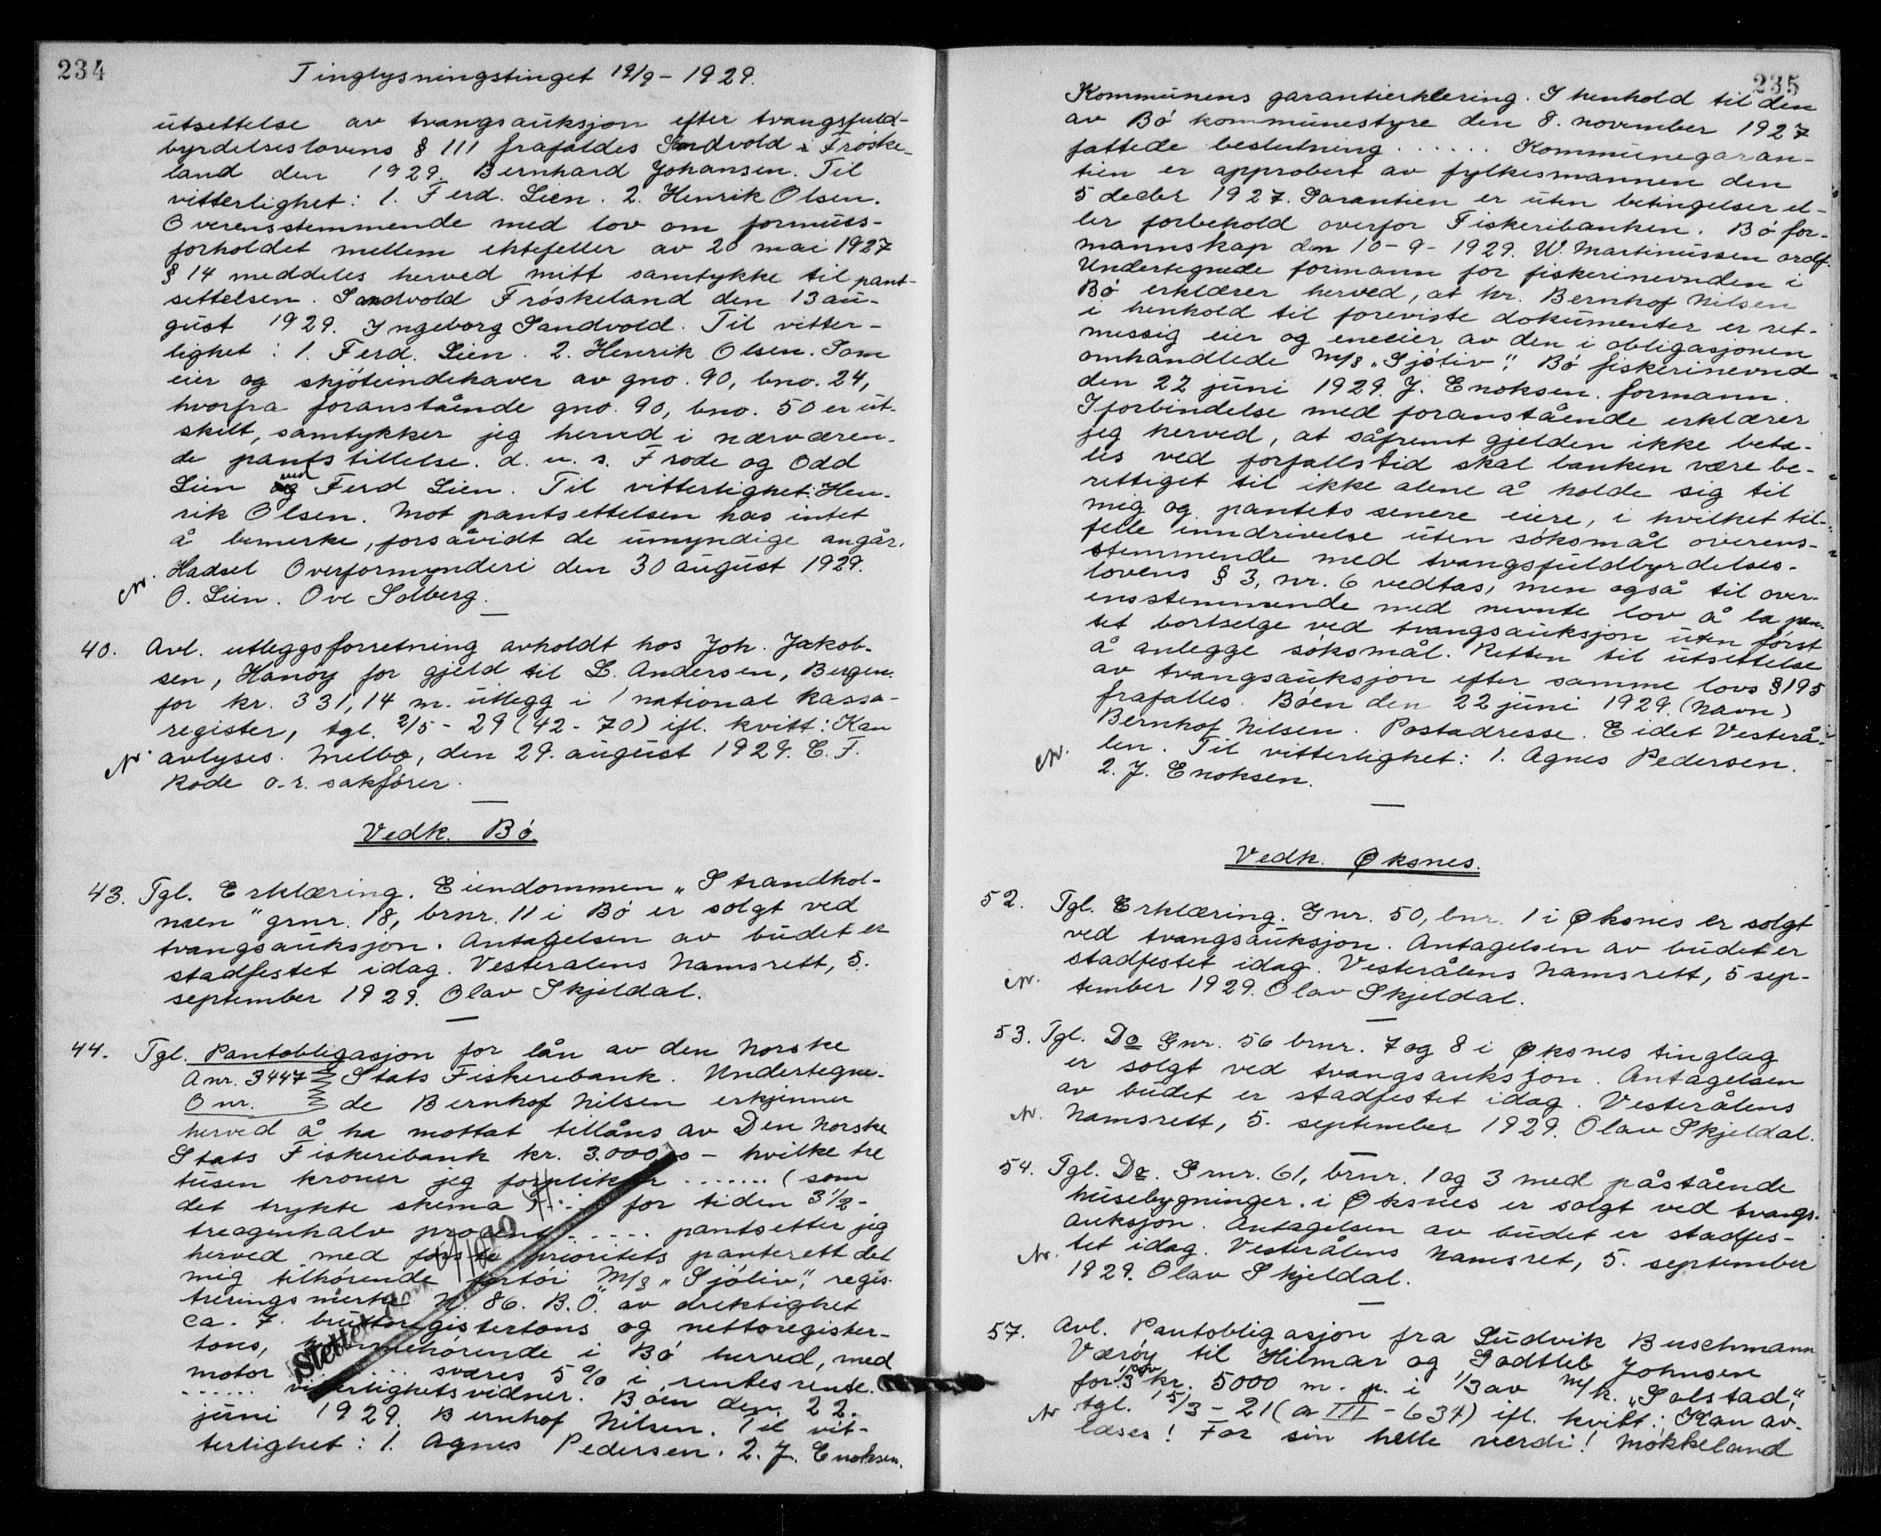 234
Tinglysningstinget 19/9 - 1929.
utsettelse av tvangsauksjon efter tvangsfuld-
byrdelseslovens § 111 frafaldes Sandvold i Frøske-
land den 1929. Bernhard Johansen. Til
vitterlighet: 1. Ferd. Lien. 2. Henrik Olsen.
Overensstemmende med lov om formues-
forholdet mellem ektefeller av 20 mai 1927
§ 14 meddeles herved mitt samtykke til pant-
settelsen. Sandvold Frøskeland den 13 au-
gust 1929. Ingeborg Sandvold. Til vitter-
lighet: 1. Ferd. Lien. 2. Henrik Olsen. Som
eier og skjøteindehaver av gno. 90, bno. 24,
hvorfra foranstående gno. 90, bno. 50 er ut-
skilt, samtykker jeg herved i nærværen-
de pantstillelse. d. u. s. Frode og Odd
Lien ved Ferd Lien. Til vitterlighet: Hen-
rik Olsen. Mot pantsettelsen has intet
å bemerke, forsåvidt de umyndige angår.
Hadsel Overformynderi den 30 august 1929.
O. Lien. Ove Solberg.
40. Avl. utleggsforretning avholdt hos Joh. Jakob-
sen, Hanøy for gjeld til L. Andersen, Bergen.
for kr. 331,14 m. utlegg i 1 national kassa-
register, tgl. 2/5 - 29 (42 - 70) ifl. kvitt: Kan
avlyses. Melbo, den 29. august 1929. C. F.
Rode o.r. sakfører.
Vedk. Bø.
43. Tgl. Erklæring. Eiendommen "Strandhol-
men" grnr. 18, brnr. 11 i Bø er solgt ved
tvangsauksjon. Antagelsen av budet er
stadfestet idag. Vesteralens Namsrett, 5.
september 1929. Olav Skjeldal.
44. Tgl. Pantobligasjon for lån av den Norske
A nr. 3447 Stats Fiskeribank. Undertegne-
O nr. de Bernhof Nilsen erkjenner
herved å ha mottat tillåns av Den Norske
Stats Fiskeribank kr. 3.000,00 - hvilke tre
tusen kroner jeg forplikter ....... (som
det trykte skema) ..... for tiden 3 1/2 -
treogenhalv procent ...... pantsetter jeg
herved med første prioritets panterett det
mig tilhørende fartøi M/S "Sjøliv", regis-
treringsmerke N. 86. B.Ø. av drektighet
ca. 7. bruttoregistertons og nettoregister-
tons, hjemmehørende i Bø herred, med
motor ...... svares 5 % i rentesrente.
...... vitterlighetsvidner. Bøen den 22.
juni 1929. Bernhof Nilsen. Til vit-
terlighet: 1. Agnes Pedersen. 2. J. Enoksen.
Slettet
235
Kommunens garantierklæring. I henhold til den
av Bø kommunestyre den 8. november 1927
fattede beslutning ...... Kommunegaran-
tien er approbert av fylkesmannen den
5 decbr 1927. Garantien er uten betingelser el-
ler forbehold overfor Fiskeribanken. Bø for-
mannskap den 10 - 9 - 1929. W. Martinussen ordf.
Undertegnede formann for fiskerinevnden i
Bø erklærer herved, at hr. Bernhof Nilsen
i henhold til foreviste dokumenter er ret-
messig eier og eneeier av den i obligasjonen
omhandlede M/S "Sjøliv". Bø fiskerinevnd
den 22 juni 1929. J. Enoksen. formann.
I forbindelse med foranstående erklærer
jeg herved, at såfremt gjelden ikke beta-
les ved forfallstid skal banken være be-
rettiget til ikke alene å holde sig til
mig og pantets senere eiere, i hvilket til-
felle inndrivelse uten søksmål overens-
stemmende med tvangsfuldbyrdelses-
lovens § 3, nr. 6 vedtas, men også til over-
ensstemmende med nevnte lov å la pan-
tet bortselge ved tvangsauksjon uten først
å anlegge søksmål. Retten til utsettelse
av tvangsauksjon efter samme lovs § 195
frafalles. Bøen den 22 juni 1929. (navn)
Bernhof Nilsen. Postadresse. Eidet Vesterå-
len. Til vitterlighet: 1. Agnes Pedersen.
2. J. Enoksen.
Vedk. Øksnes.
52. Tgl. Erklæring. Gnr. 50, bnr. 1 i Øksnes er solgt
ved tvangsauksjon. Antagelsen av budet er
stadfestet idag. Vesterålens Namsrett, 5 sep-
tember 1929. Olav Skjeldal.
53. Tgl. Do Gnr. 56 brnr. 7 og 8 i Øksnes tinglag
er solgt ved tvangsauksjon. Antagelsen
av budet er stadfestet idag. Vesterålens
Namsrett, 5. september 1929. Olav Skjeldal.
54. Tgl. Do. Grnr. 61, brnr. 1 og 3 med påstående
husebygninger i Øksnes er solgt ved tvangs-
auksjon. Antagelsen av budet er stadfes-
tet idag. Vesterålens Namsret, 5. september
1929. Olav Skjeldal.
57. Avl. Pantobligasjon fra Ludvik Buschmann
Værøy til Hilmar og Godtleb Johnsen
for 1/3 av kr. 5000 m. p. i 1/3 av M/k. "Solstad",
tgl. 15/3 - 21 (a III - 634) ifl. kvitt: Kan av-
læses! For sin helle verdi! Møkkeland